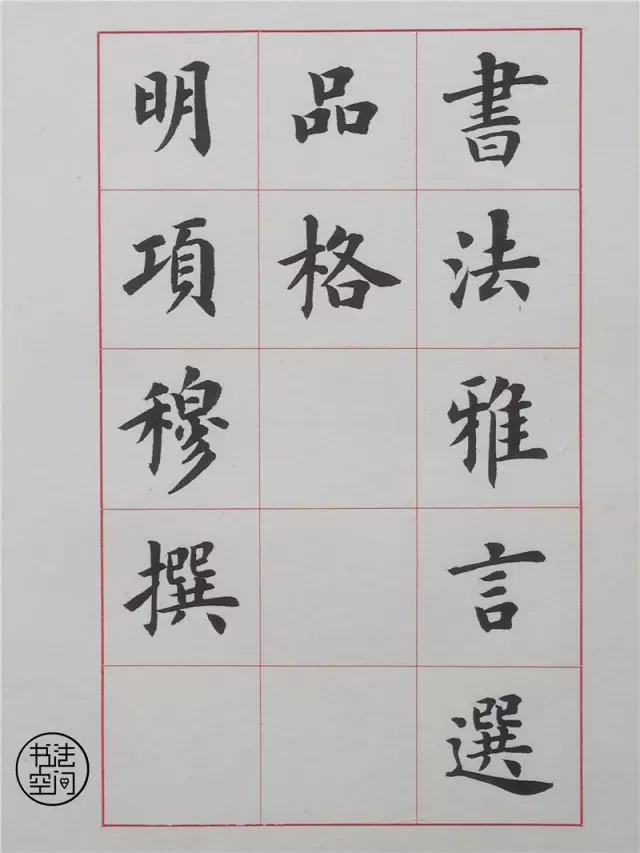 書法雅言選
品格
明項穆撰
书法
空间